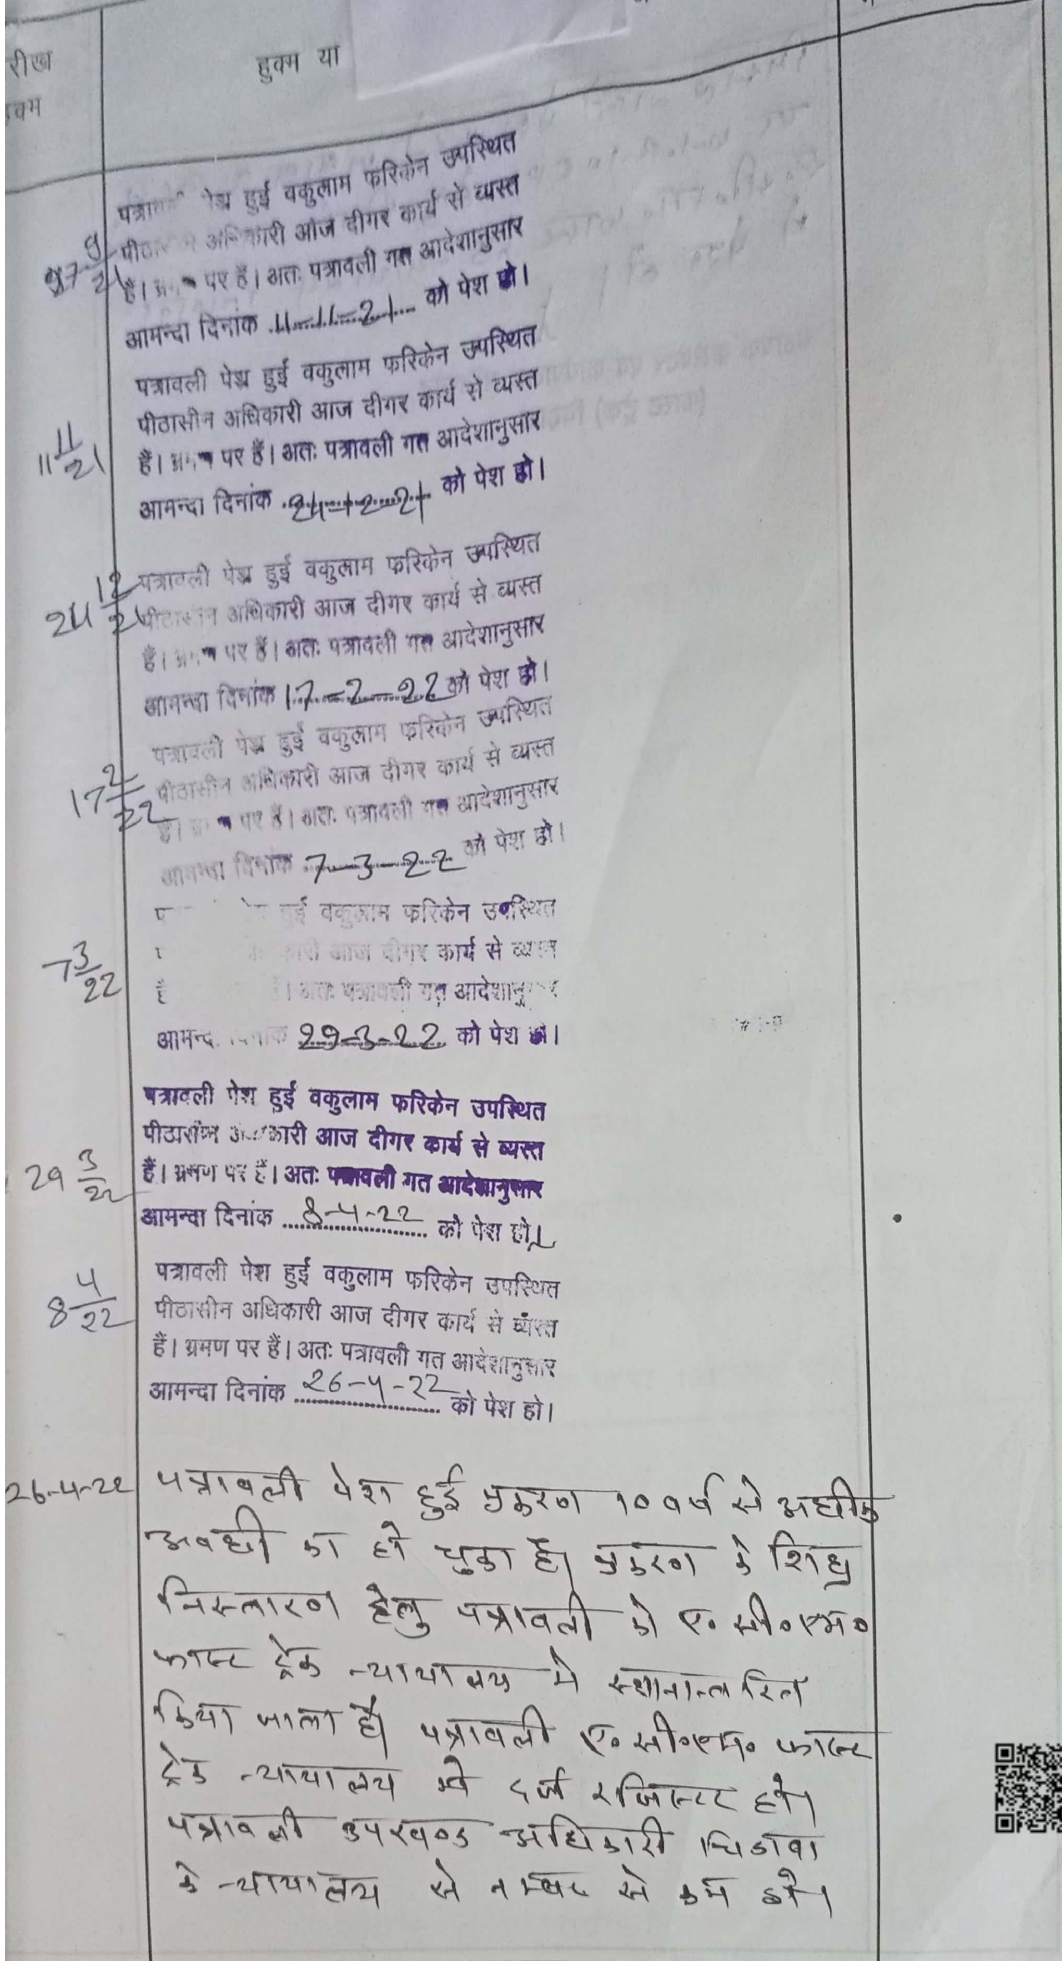 रीख
हुक्म या
क्म
पेश हुई वकुलाम फरिकेन उपस्थित
आज दीगर कार्य से व्यस्त
है। पर हैं। अतः पत्रावली गत आदेशानुसार
आमन्दा दिनांक 11-11-21 को पेश हो।
पत्रावली पेश हुई वकुलाम फरिकेन उपस्थित
11 11/21
पीठासीन अधिकारी आज दीगर कार्य से व्यस्त
हैं। पर हैं। अतः पत्रावली गत आदेशानुसार
आमन्दा दिनांक 24-12-21 को पेश हो।
24 12/21
पत्रावली पेश हुई वकुलाम फरिकेन उपस्थित
अधिकारी आज दीगर कार्य से व्यस्त
हैं। पर हैं। अतः पत्रावली गत आदेशानुसार
आमन्दा दिनांक 17-2-22 को पेश हो।
पत्रावली पेश हुई वकुलाम फरिकेन उपस्थित
17 2/22
पीठासीन अधिकारी आज दीगर कार्य से व्यस्त
पर हैं। अतः पत्रावली गत आदेशानुसार
आमन्दा दिनांक 7-3-22 को पेश हो।
हुई वकुलाम फरिकेन उपस्थित
7 3/22
आज दीगर कार्य से व्यस्त
अतः पत्रावली गत
29-3-22 को पेश हो।
पत्रावली पेश हुई वकुलाम फरिकेन उपस्थित
पीठासीन आज दीगर कार्य से व्यस्त
29 3/22
हैं। भ्रमण पर हैं। अतः पत्रावली गत आदेशानुसार
आमन्दा दिनांक 8-4-22 को पेश हो।
8 4/22
पत्रावली पेश हुई वकुलाम फरिकेन उपस्थित
पीठासीन अधिकारी आज दीगर कार्य से व्यस्त
हैं। भ्रमण पर हैं। अतः पत्रावली गत आदेशानुसार
आमन्दा दिनांक 26-4-22 को पेश हो।
26-4-22 पत्रावली पेश हुई प्रकरण 10 वर्ष से अधीक
अवधी का हो चुका है। प्रकरण के शिघ्र
निस्तारण हेतु पत्रावली को ए॰ सी॰ एम॰
फास्ट ट्रेक न्यायालय मे स्थानान्तरित
किया जाता है। पत्रावली ए॰ सी॰ एम॰ फास्ट
ट्रेक न्यायालय मे दर्ज रजिस्टर हो।
पत्रावली उपखण्ड अधिकारी चिडावा
के न्यायालय से नम्बर से कम हो।